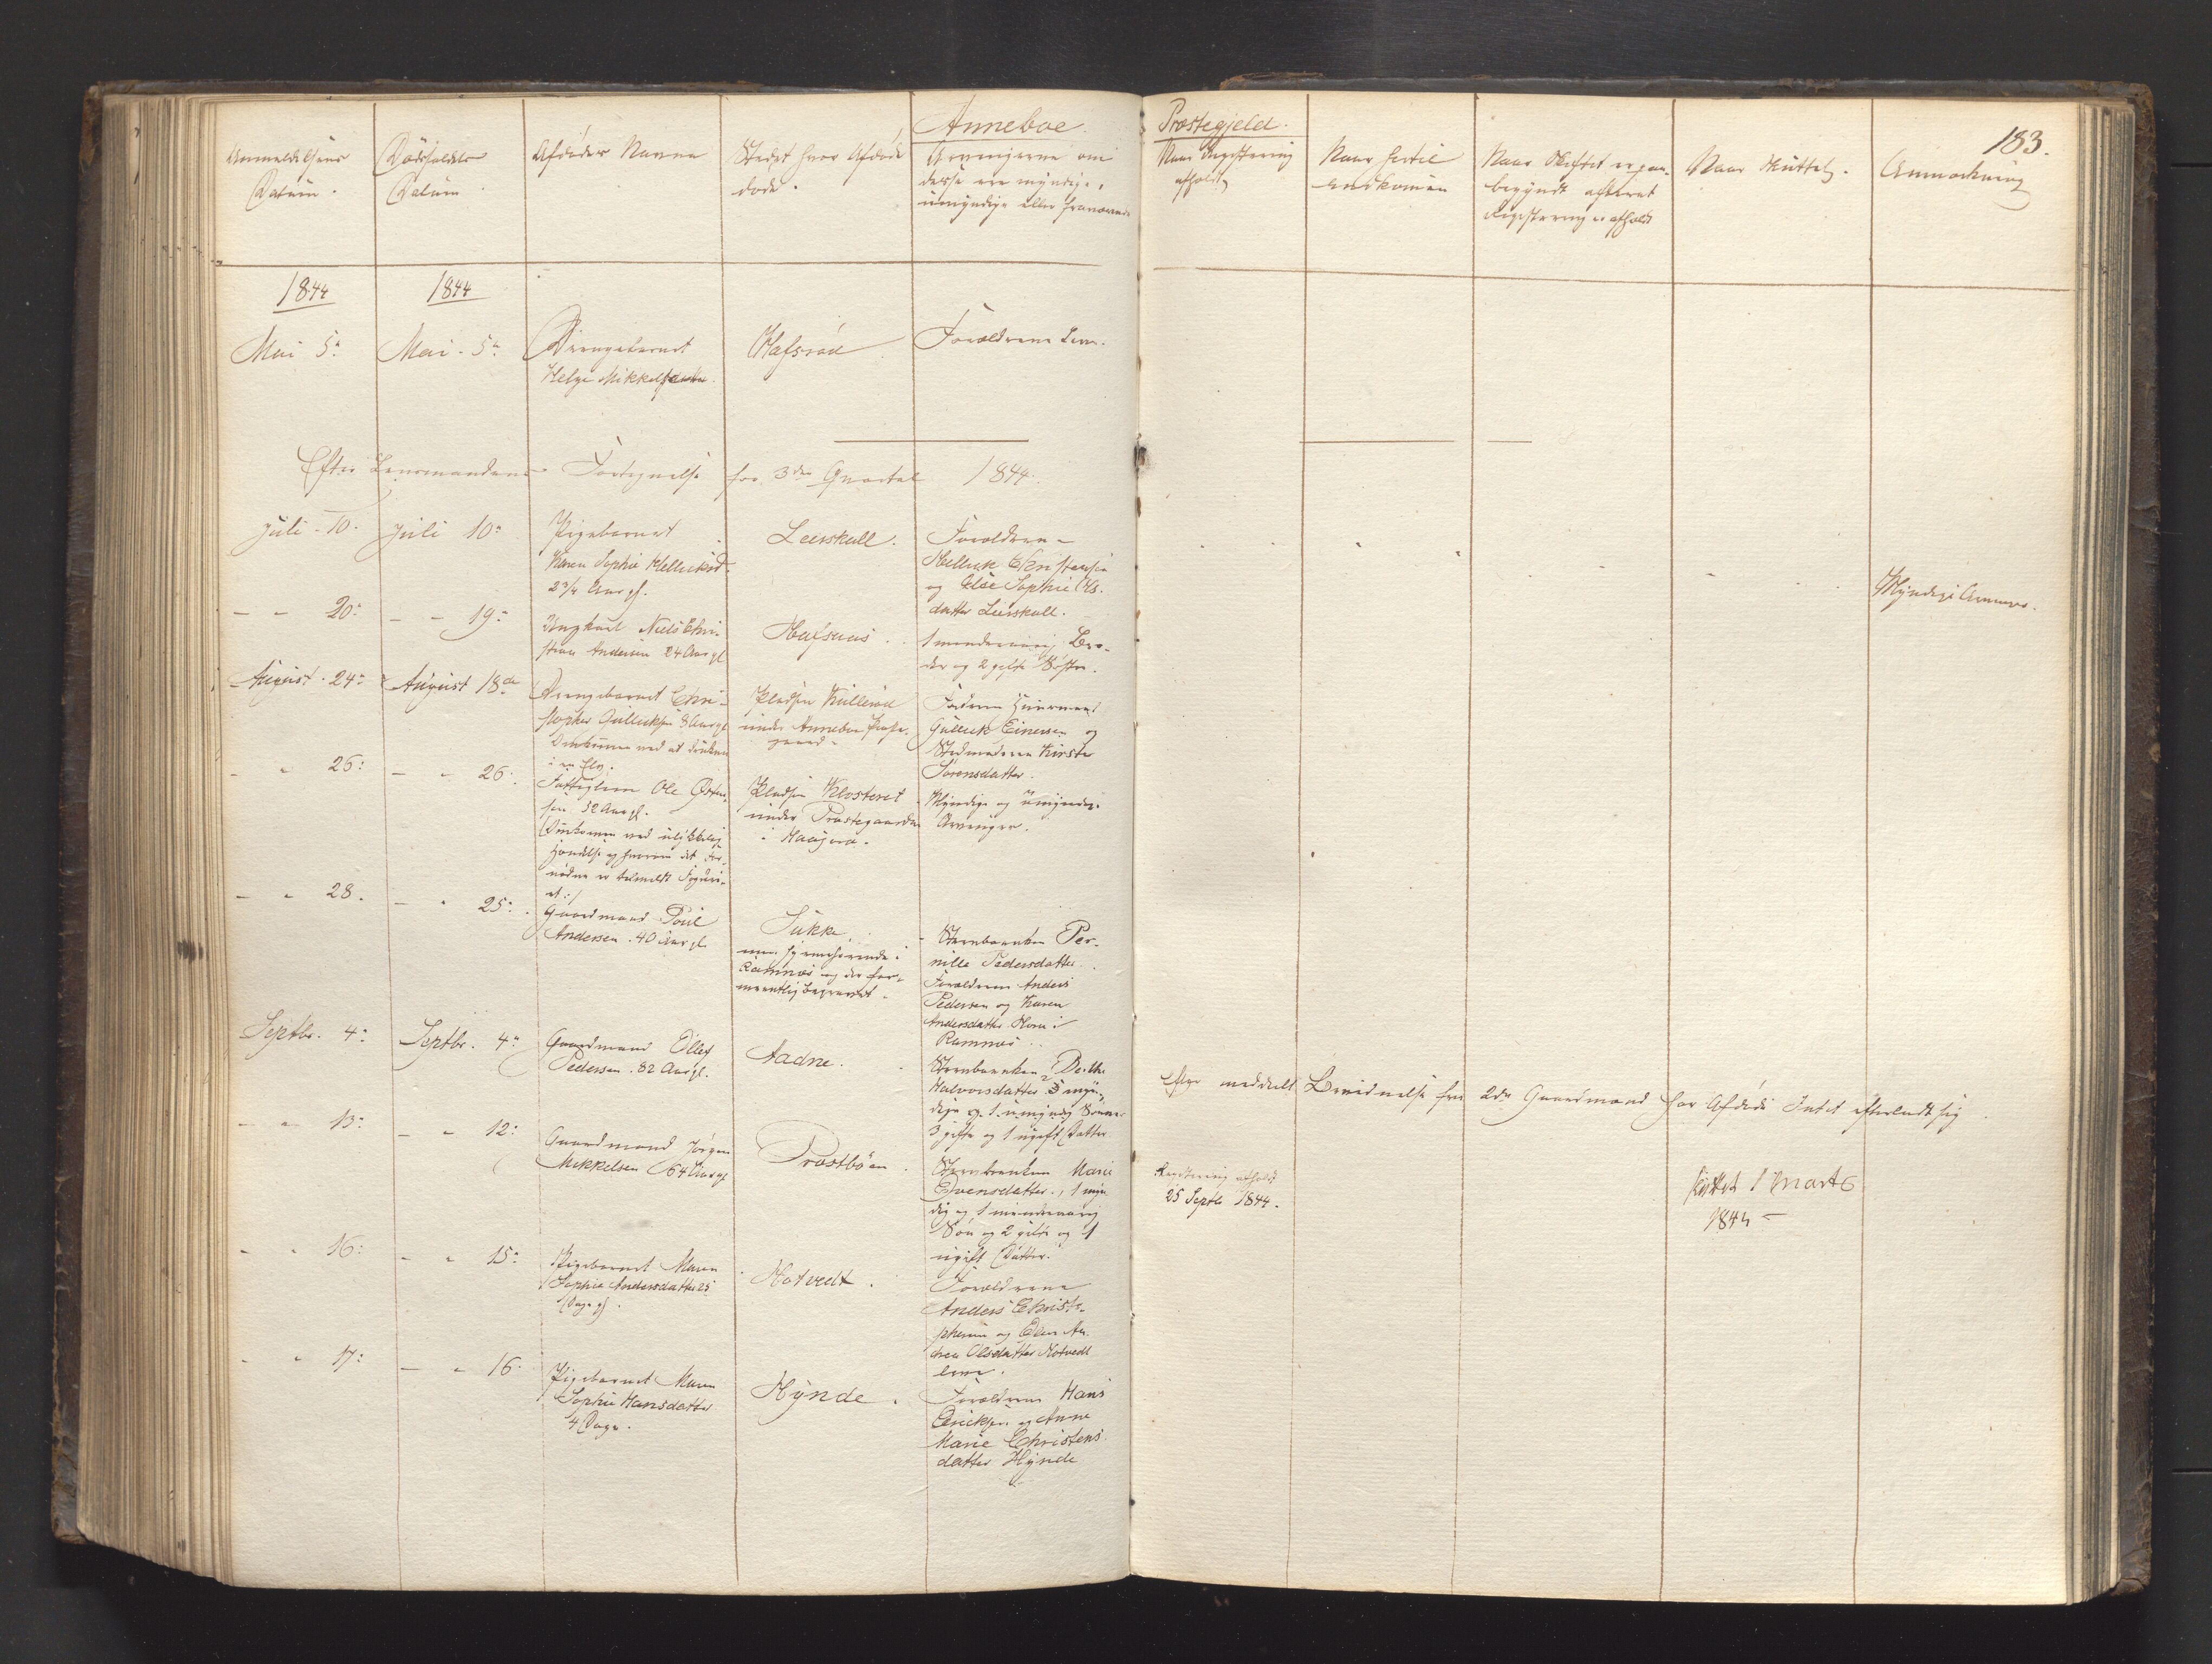 Anneboe Præstegjeld.
183.
Anmeldelsens Datum.
Dødsfaldets Datum
Afdødes Navne
Stedet hvor Afdøde døde.
Arvingerne om
disse ere myndige,
umyndige eller fraværende
Naar Registrering
afholdt
Naar hertil
ankommen
Naar Skiftet er paa-
begyndt efterat
Registrering er afholdt
Naar sluttet.
Anmærkning
1844
1844
Mai 5.
Mai 5.
Drengebarnet
Helge Mikkelsen
Hafsrød
Forældrene leve.
Efter Lensmandens Fortegnelse for 3die Qvartal 1844.
Juli 10.
Juli 10.
Pigebarnet
Karen Sophie Hellicksd.
2 3/4 Aar gl.
Leerskall.
Forældrene
Hellick Christensen
og Else Sophie Ols-
datter Leerskall.
- - 20.
- - 19.
Ungkarl Niels Chri-
stian Andersen 24 Aar gl.
Hafsnæs.
1 mindreaarig Bro-
der og 2 gifte Søstre.
Myndige Arvinger.
August 24.
August 18de
Drengebarnet Chri-
stopher Gulliksen 8 Aar gl.
Omkommen ved at drukne
i en Elv.
Pladsen Kullerød
under Anneboe Præste-
gaard.
Faderen Huusmand
Gullick Einersen og
Stedmoderen Kirste
Sørensdatter.
- - 26.
- - 26.
Fattiglem Ole Østen-
sen 52 Aar gl.
Omkommen ved ulykkelig
Hændelse og hvorom det For-
nødne er tilmeldt Fogderi-
et:/
Pladsen Klosteret
under Præstegaarden
i Haugerø.
Myndige og umyndige
Arvinger.
- - 28.
- - 25.
Gaardmand Poul
Andersen. 40 Aar gl.
Sukke
men hjemhørende i
Ramnæs og der for-
meentlig begravet.
Stervboenken Per-
nille Pedersdatter.
Forældrene Anders
Pedersen og Karen
Andersdatter Horn i
Ramnæs.
Septbr. 4.
Septbr. 4.
Gaardmand Ellef
Pedersen. 82 Aar gl.
Aadne.
Stervboenken Berthe
Halvorsdatter 3 myn-
dige og 1 umyndig Sønner
3 gifte og 1 ugift Datter
Efter meddelt Bevidnelse fra 2de Gaardmænd har Afdøde Intet efterladt sig.
- - 13.
- - 12.
Gaardmand Jørgen
Mikkelsen 64 Aar gl.
Præstbøen.
Stervboenken Marie
Evensdatter, 1 myn-
dig og 1 mindreaarig
Søn og 2 gifte og 1
ugift Datter.
Registrering afholdt
25 Septb 1844.
sluttet 1 Marts
1845
- - 16.
- - 15.
Pigebarnet Maren
Sophie Andersdatter 25
Dage gl.
Hotvedt.
Forældrene
Anders Christo-
phersen og Elen An-
drea Olsdatter Hotvedt
leve.
- - 17.
- - 16.
Pigebarnet Maren
Sophie Hansdatter
4 Dage.
Hynde.
Forældrene Hans
Ericksen og Anne
Marie Christens-
datter Hynde